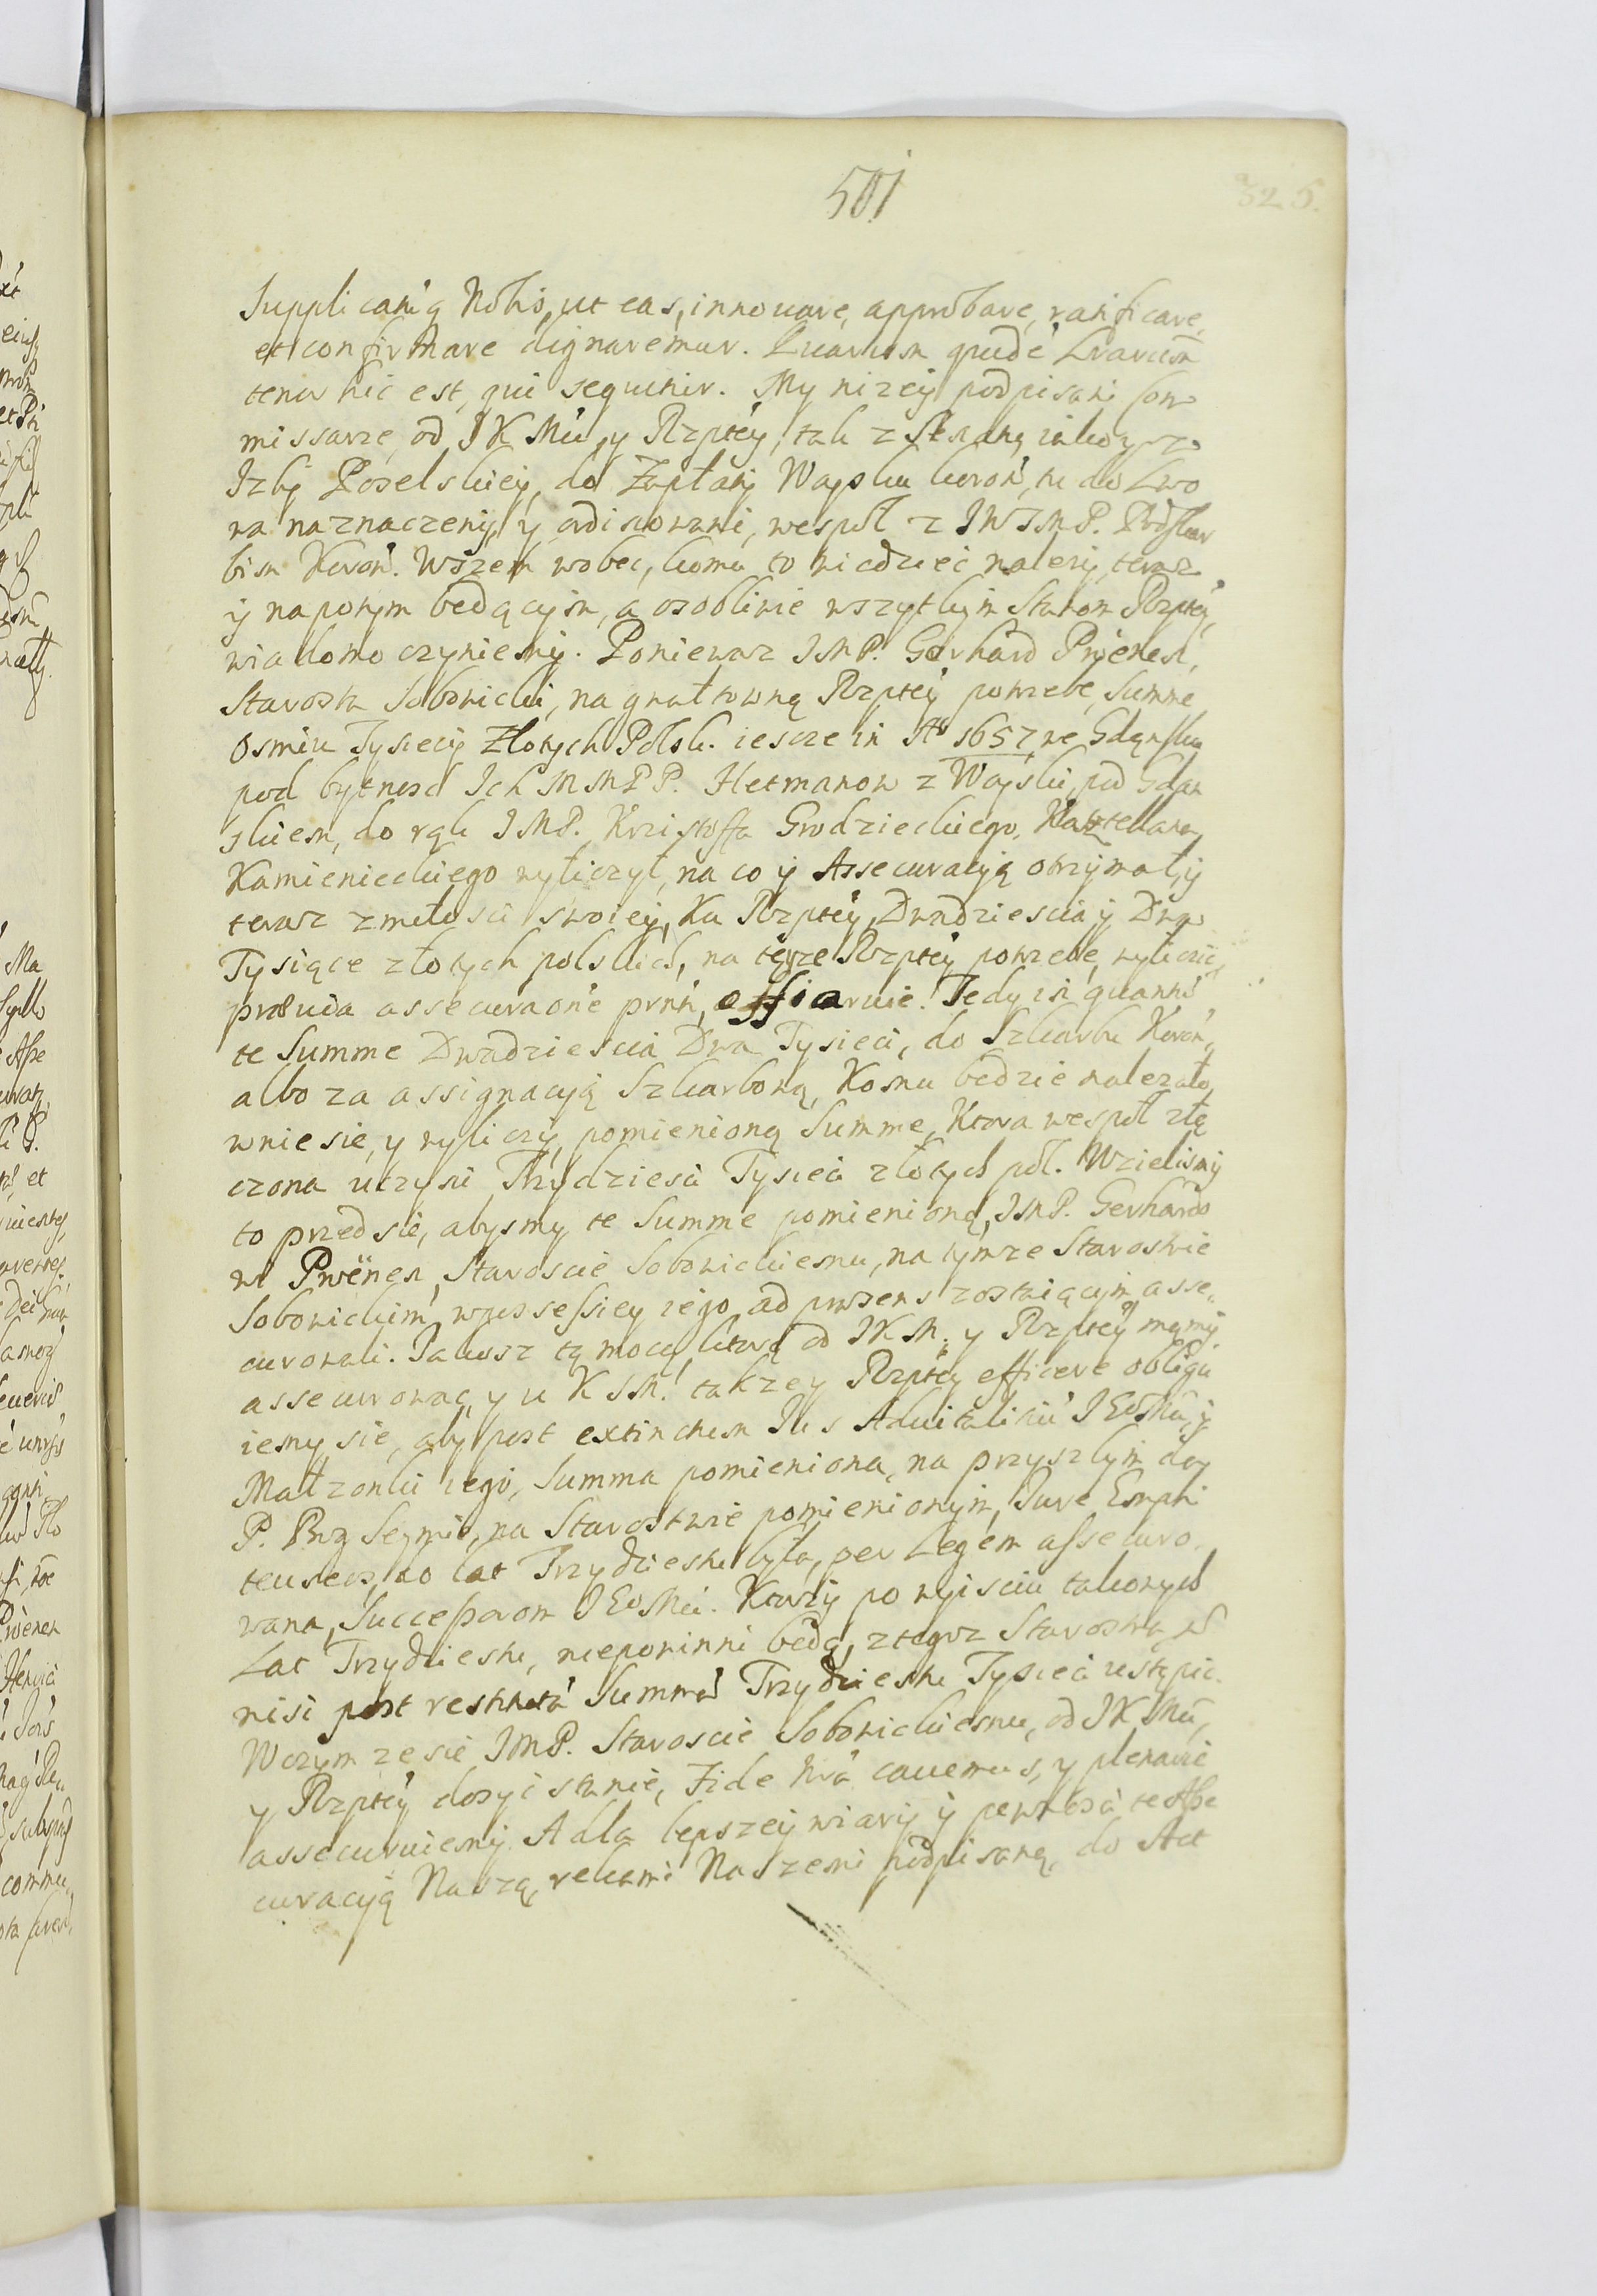 501
325.
Supplicatũq Nobis, ut eas, innouare, approbare, ratificare,
et confirmare dignaremur. Quarum quidẽ Lrarum
tenor hic est, qui sequitur. My nizey podpisani Com
missarze, od JKMci, y Rzptey, tak z Senatu iako y z
Izby Poselskiey, do Zapłaty Woyska Koroń, tu do Lwo
wa naznaczeni, y ordinowani, wespoł z JWJMP. Podskar
bim Koroń. Wszem wobec, komu to wiedzieć nalezy, teraz
y napotym będącym, a osobliwie wszytkym Stanom Rzptey,
wiadomo czyniemy. Poniewasz JMP. Gerhard Pröenen,
Starosta Sobowicki, na gwałtowną Rzptey potrzebę, Summę
Osmiu Tysięcy Złotych Polsk. iescze in Aō 1657 we Gdąnsku
pod bytnosć Ich MMPP. Hetmanow z Woyski, pod Gdan
skiem, do rąk JMP. Krzistoffa Grodzieckiego, Kasztellana
Kamienieckiego wyliczył, na co y Assecuracyą otrzymał, y
teraz z miłosci swoiey, Ku Rzptey, Dwadziescia y Dwa
Tysiące złotych polskich, na tęsze Rzptey potrzebę, wyliczić,
prævia assecuraōne prñti, offiaruie. Tedy in quantũ
te Summę Dwadziescia Dwa Tysięci, do Szkarbu Koroń,
albo za assignacyą Szkarbową, Komu będzie nalezało,
wniesie, y wyliczy, pomienioną Summę, Ktora wespoł złą
czona uczyni Trzydziesci Tysięci złotych pol. Wzielismy
to przed się, abysmy te Summę pomienioną, JMP. Gerhardo
wi Pröenen, Staroscie Sobowickiemu, na tymze Starostwie
Sobowickim, w possessiey iego ad præsens zostaiącym asse„
curowali. Jakosz tą mocą, ktorą od JKM. y Rzptey mamy
assecurować, y u KJM. takze y Rzptey efficere obligu
iemy się, aby post extinctum Jus Aduitalitiũ JEoMći, y
Małzonki iego, Summa pomieniona, na przyszłym da
P. Bog Seymie, na Starostwie pomienionym, Jure Emphi
teuseos, do lat Trzydziestu była, per Legem assecuro„
wana, Successorom JEoMci. Ktorzy po wyisciu takowych
Lat Trzydziestu, niepowinni będą, z tegosz Starostwa,
nisi post restitutã Summã Trzydziestu Tysięci ustąpić.
W czym ze się JMP. Staroscie Sobowickiemu, od JKMci,
y Rzptey dosyć stanie, Fide nrã cauemus, y plenarie
assecuruiemy. A dla lepszey wiary y pewnosci, te Asse
curacyą Naszą, rękami Naszemi podpisaną, do Act